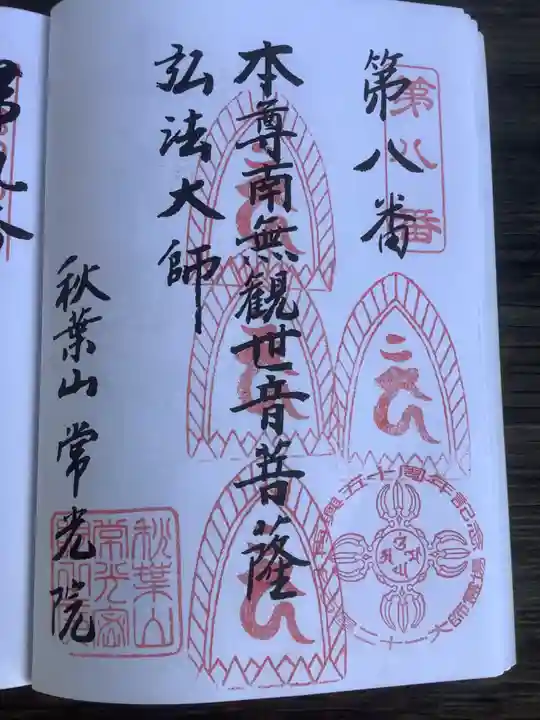 第八番
第八番
本尊南無観世音菩薩
弘法大師
秋葉山常光院
秋葉山
常光密
再興五十周年記念
二十一大師霊場